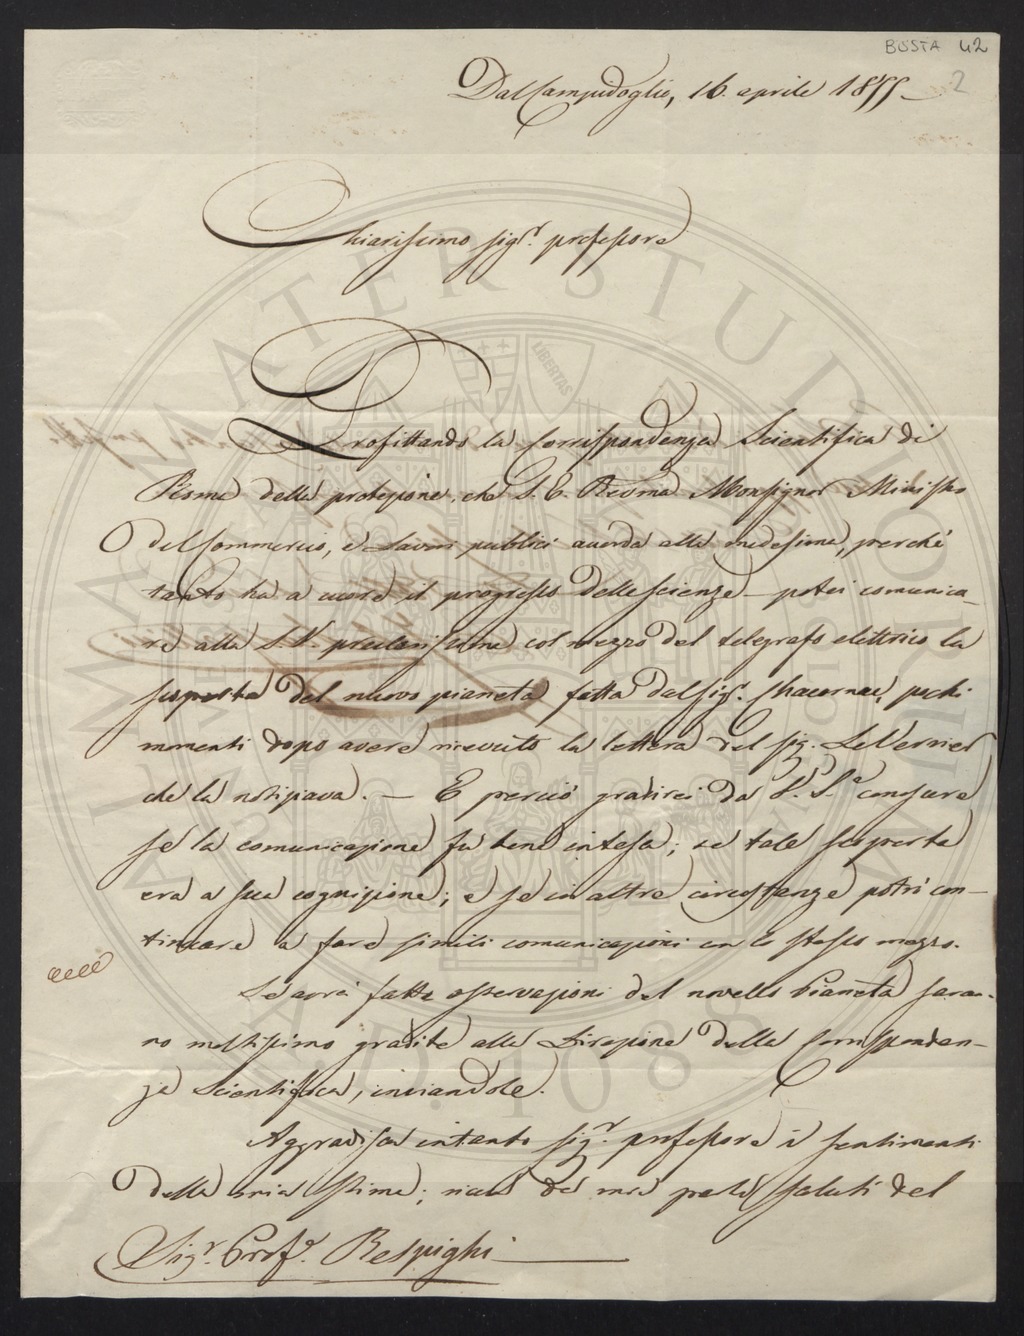 BUSTA 42
2
Dal Campidoglio, 16. aprile 1855
Chiarissimo sigr. professore
Profittando la Corrispondenza Scientifica di
Roma della protezione, che S. E. Rev.ma Monsignor Ministro
del Commercio, e Lavori publici accorda alla medesima, perché
tanto ha a cuore il progresso delle scienze - potei comunica-
re alla S. V. preclarissima col mezzo del telegrafo elettrico la
scoperta del nuovo pianeta fatta dal sigr. Chacornac, pochi
momenti dopo avere ricevuto la lettera del sig. LeVerrier
che la notificava. - E perciò gradirei da V. S.a conoscere
se la comunicazione fu bene intesa; se tale scoperta
era a sua cognizione; e se in altre circostanze potrò con-
tinuare a fare simili comunicazioni con lo stesso mezzo.
Se avrà fatte osservazioni del novello Pianeta saran-
no moltissimo gradite alla Direzione della Corrisponden-
za Scientifica, inviandole.
Aggradisca intanto sigr. professore i sentimenti
della mia stima; mi parte saluti del
Sigr. Profe. Respighi
ALMA MATER STUDIORUM
LIBERTAS
A.D. 1088